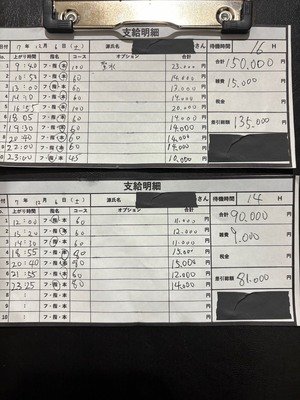 支給明細
日付 7年 12月 6日(土) 源氏名 さん 待機時間 16 H
No. 上がり時間 指名 コース オプション 合計 150,000 円
1 9:40 フ・指・本 100 聖水 23,000 円
2 10:52 フ・指・本 60 14,000 円
3 13:00 フ・指・本 60 円
4 14:30 フ・指・本 60 円
5 16:55 フ・指・本 100 20,000 円
6 18:05 フ・指・本 60 14,000 円
7 19:30 フ・指・本 60 14,000 円
8 20:40 フ・指・本 60 14,000 円
9 22:00 フ・指・本 60 14,000 円
10 23:00 フ・指・本 45 10,000 円
雑費 15,000 円
税金 円
差引総額 135,000 円
支給明細
日付 7年 12月 6日(土) 源氏名 さん 待機時間 14 H
No. 上がり時間 指名 コース オプション 合計 90,000 円
1 12:00 フ・指・本 60 11,000 円
2 13:20 フ・指・本 60 12,000 円
3 14:30 フ・指・本 60 11,000 円
4 18:55 フ・指・本 90 15,000 円
5 20:40 フ・指・本 90 15,000 円
6 21:55 フ・指・本 60 12,000 円
7 23:25 フ・指・本 80 14,000 円
8 : フ・指・本 円
9 : フ・指・本 円
10 : フ・指・本 円
雑費 9,000 円
税金 円
差引総額 81,000 円